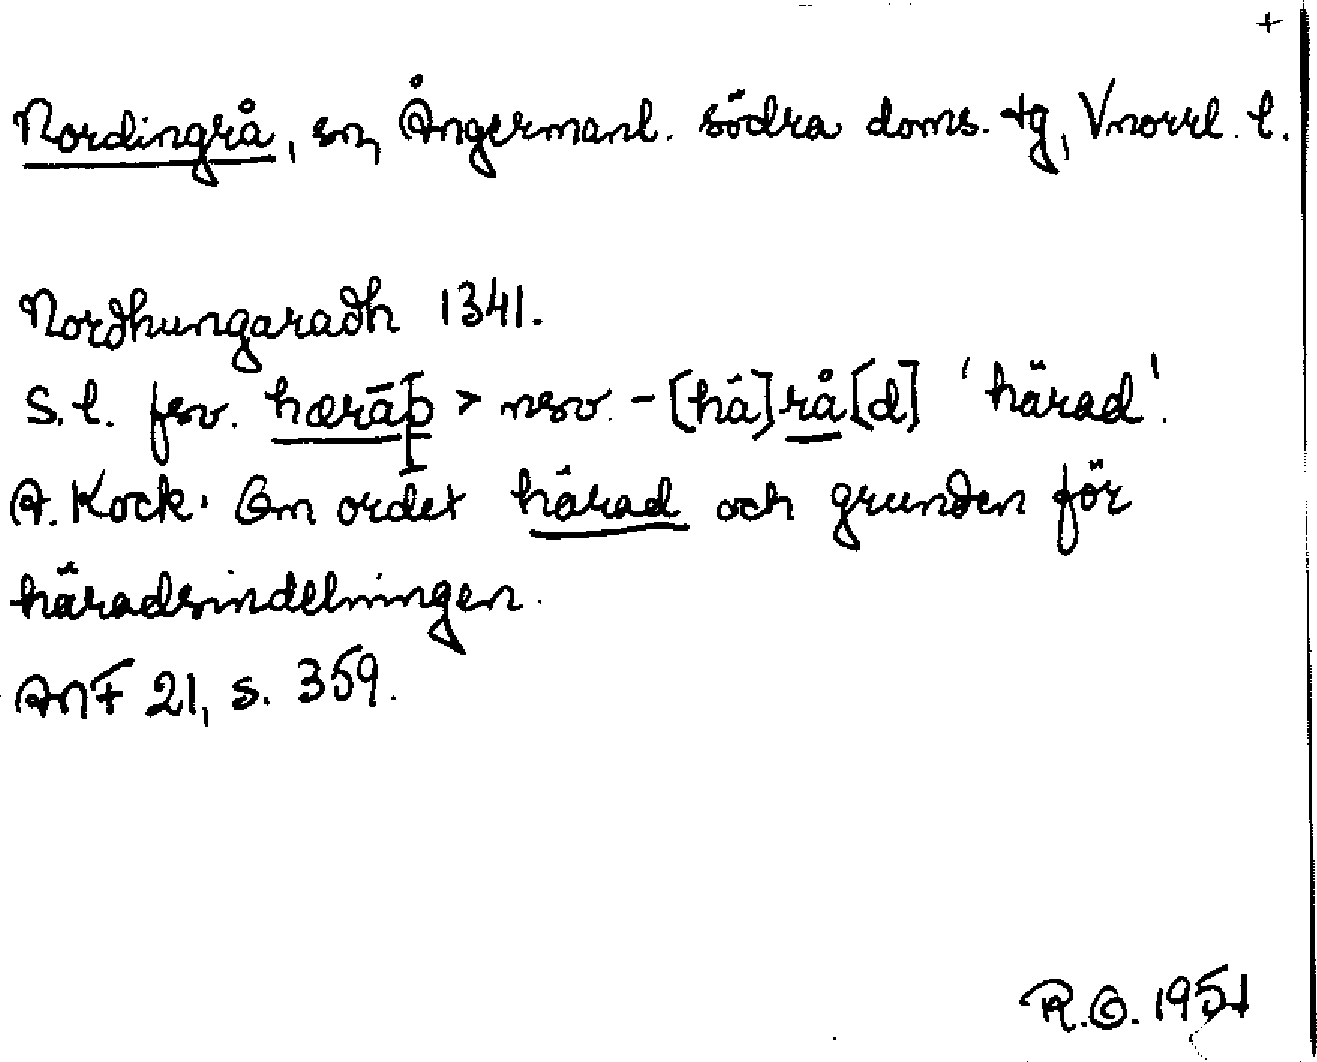 +
Nordingrå, sn, Ångermanl. södra doms. tg, Vnorrl. l.
Nordhungaradh 1341.
S. l. fsv. hærāþ > nsv. -[hä]rå[d] 'härad'.
A. Kock. Om ordet härad och grunden för
häradsindelningen.
ANF 21, s. 359.
R.O. 1951